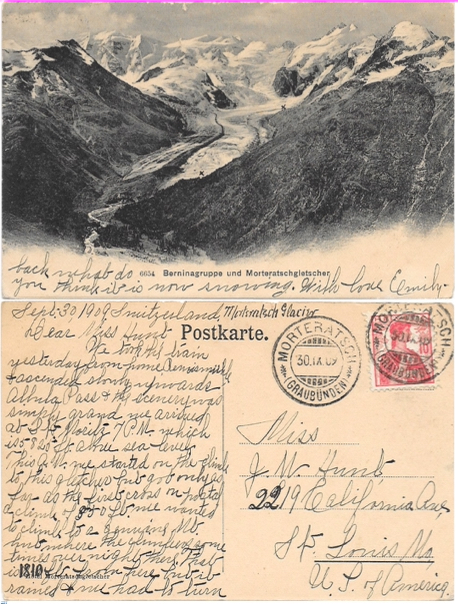 6654 Berninagruppe und Morteratschgletscher
back what do
you think it is now snowing. With love Emily
Sept. 30 1909 Switzerland, Morteratsch Glacier
Dear Miss Hunt
Postkarte.
We took the train
yesterday from
& ascended slowly upwards
Albula Pass & the scenery was
simply grand we arrived
at St Moritz 7 P.M. which
is 5825 ft above sea level.
This A.M. we started on the climb
to this glacier but got only as
far as the first cross on postal
a climb of ft we wanted
to climb to a
hut where the climbers some
times over night there. That
is from here but it
rained & we had to turn
1810
Hotel Morteratschgletscher
MORTERATSCH
30.IX.09
(GRAUBÜNDEN)
MORTERATSCH
30.IX.09
Miss
J. W. Hunt
2219 California Ave,
St. Louis Mo,
U. S. of America